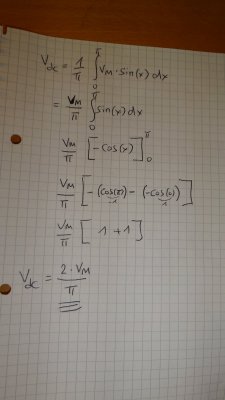 V_dc = 1/π ∫_0^π V_M · sin(x) dx
= V_M/π ∫_0^π sin(x) dx
V_M/π [-cos(x)]_0^π
V_M/π [-(cos(π)) - (-cos(0))]
-1 1
V_M/π [ 1 + 1 ]
V_dc = 2 · V_M/π